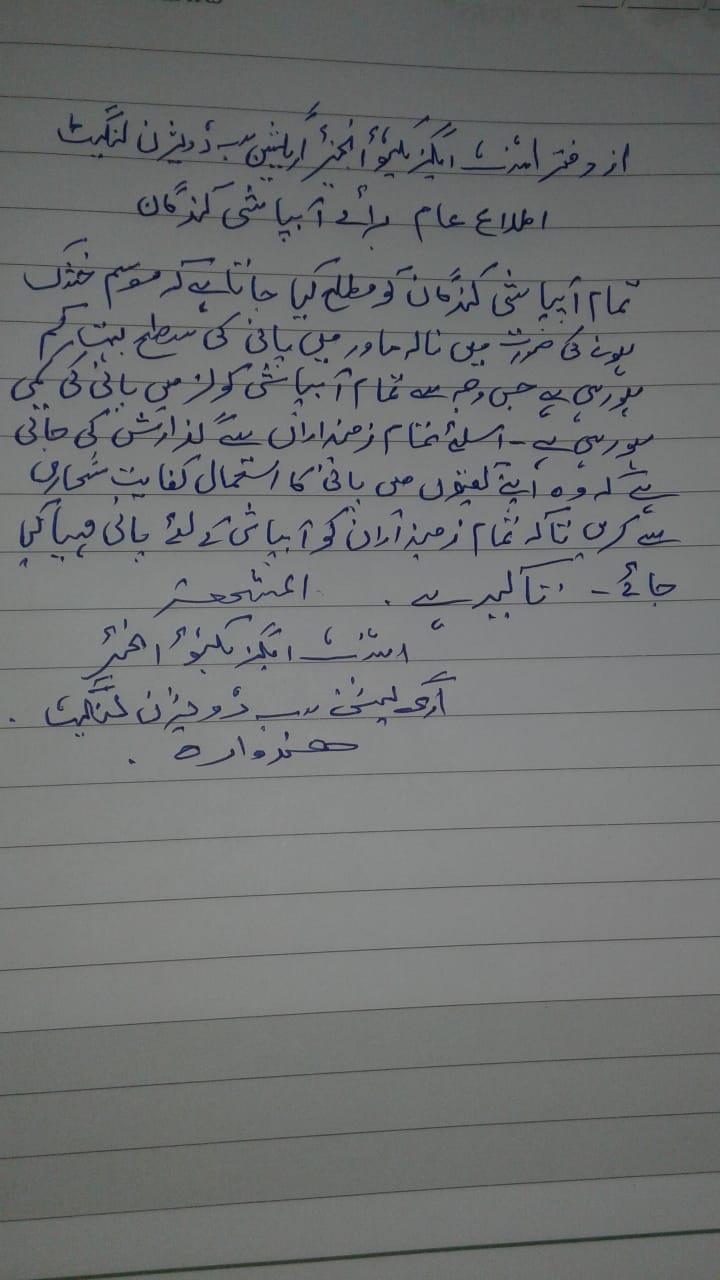 از دفتر اسٹنٹ ایگزیکیٹو انجینئر اریگیشن سب ڈویژن لنگیٹ
اطلاع عام برائے آبپاشی کنندگان
تمام آبپاشی کنندگان کو مطلع کیا جاتا ہے کہ موسم خشک
ہونے کی صورت میں نالہ ماور میں پانی کی سطح بہت کم
ہو رہی ہے جس وجہ سے تمام آبپاشی کولز میں پانی کی کمی
ہو رہی ہے - اسلئے تمام زمینداران سے گذارش کی جاتی
ہے کہ وہ اپنے کھیتوں میں پانی کا استعمال کفایت شعاری
سے کریں تاکہ تمام زمینداران کو آبپاشی کے لئے پانی مہیا کیا
جائے - تاکید ہے . المشتہر
اسٹنٹ ایگزیکیٹو انجینئر
اری گیشن سب ڈویژن لنگیٹ .
ھندوارہ .